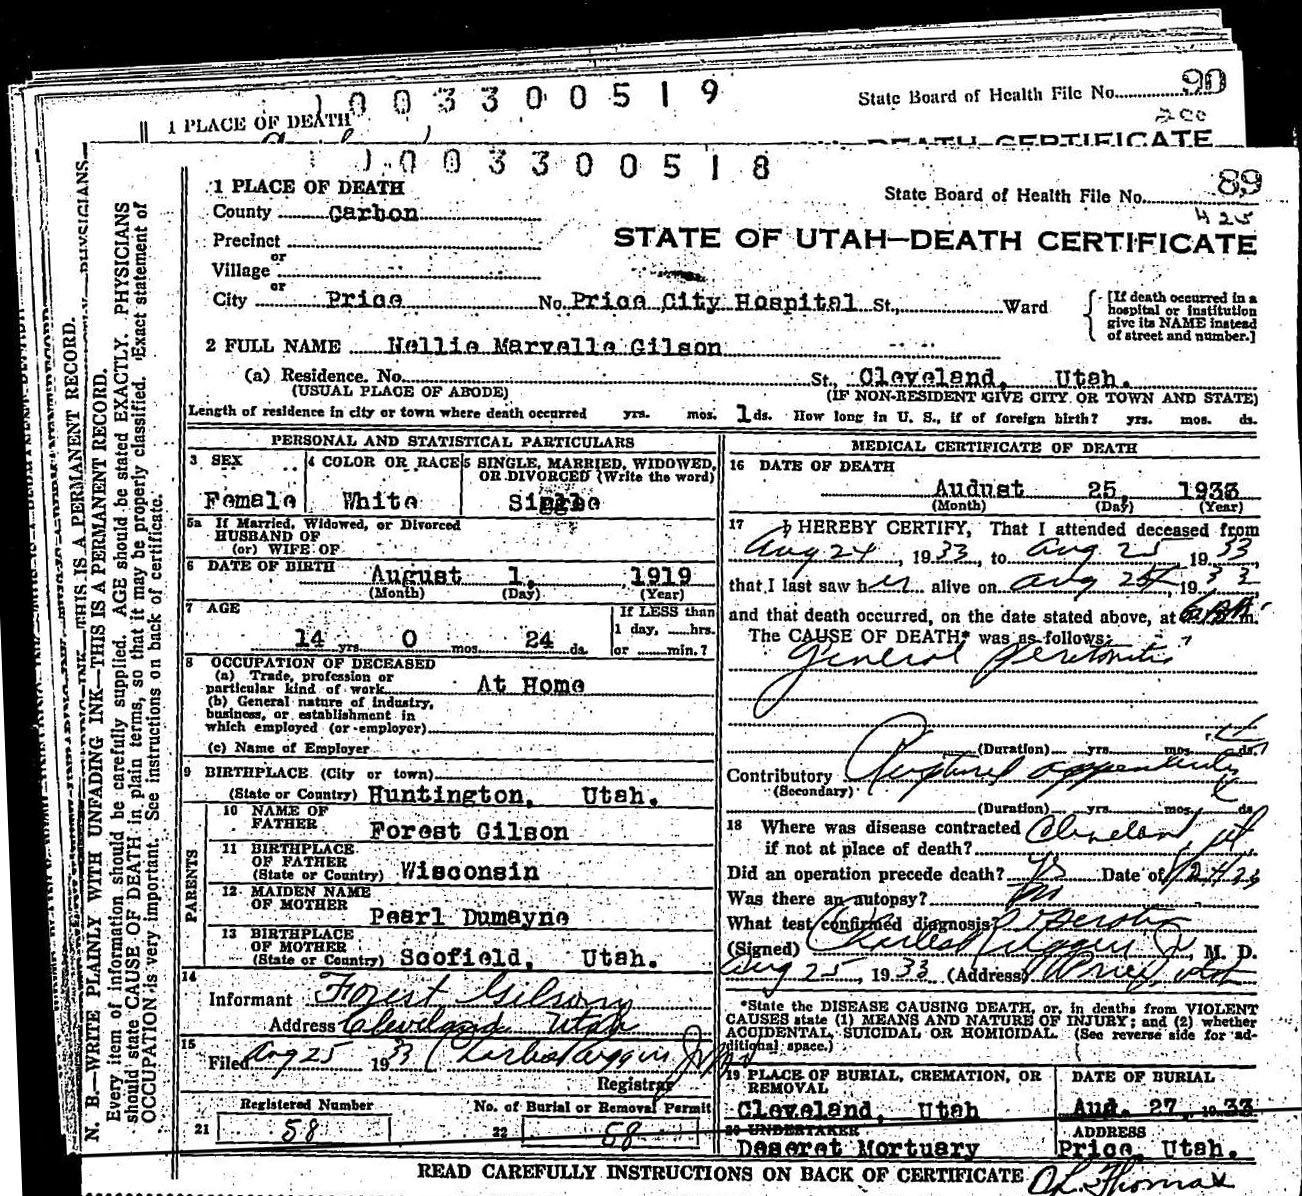 1003300519
State Board of Health File No. 90
200
1 PLACE OF DEATH
DEATH CERTIFICATE
1003300518
1 PLACE OF DEATH
State Board of Health File No. 89
425
County Carbon
STATE OF UTAH—DEATH CERTIFICATE
Precinct
or
Village
or
City Price No. Price City Hospital St., Ward
[If death occurred in a hospital or institution give its NAME instead of street and number.]
2 FULL NAME Nellie Marvelle Gilson
(a) Residence. No. St., Cleveland, Utah.
(USUAL PLACE OF ABODE) (IF NON-RESIDENT GIVE CITY OR TOWN AND STATE)
Length of residence in city or town where death occurred yrs. mos. 1 ds. How long in U. S., if of foreign birth? yrs. mos. ds.
PERSONAL AND STATISTICAL PARTICULARS
3 SEX 4 COLOR OR RACE 5 SINGLE, MARRIED, WIDOWED, OR DIVORCED (Write the word)
Female White Single
5a If Married, Widowed, or Divorced
HUSBAND OF
(or) WIFE OF
6 DATE OF BIRTH August 1, 1919
(Month) (Day) (Year)
7 AGE If LESS than
14 yrs. 0 mos. 24 ds. 1 day, hrs.
or min.?
8 OCCUPATION OF DECEASED
(a) Trade, profession or
particular kind of work At Home
(b) General nature of industry,
business, or establishment in
which employed (or employer)
(c) Name of Employer
9 BIRTHPLACE (City or town)
(State or Country) Huntington, Utah.
PARENTS
10 NAME OF
FATHER Forest Gilson
11 BIRTHPLACE
OF FATHER
(State or Country) Wisconsin
12 MAIDEN NAME
OF MOTHER Pearl Dumayne
13 BIRTHPLACE
OF MOTHER
(State or Country) Scofield, Utah.
14
Informant Forest Gilson
Address Cleveland Utah
15
Filed Aug 25 1933 Charles Ruggeri Jr
Registrar
Registered Number No. of Burial or Removal Permit
21 58 22 68
MEDICAL CERTIFICATE OF DEATH
16 DATE OF DEATH
August 25, 1933
(Month) (Day) (Year)
17 I HEREBY CERTIFY, That I attended deceased from
Aug 24, 1933 to Aug 25 1933
that I last saw her alive on Aug 25, 1933
and that death occurred, on the date stated above, at m.
The CAUSE OF DEATH* was as follows:
General Peritonitis
(Duration) yrs. mos. ds.
Contributory Ruptured appendicitis
(Secondary)
(Duration) yrs. mos. ds.
18 Where was disease contracted Cleveland, Ut
if not at place of death?
Did an operation precede death? yes Date of
Was there an autopsy? no
What test confirmed diagnosis?
(Signed) Charles Ruggeri Jr, M. D.
Aug 25, 1933 (Address) Price, Utah
*State the DISEASE CAUSING DEATH, or, in deaths from VIOLENT
CAUSES state (1) MEANS AND NATURE OF INJURY; and (2) whether
ACCIDENTAL, SUICIDAL OR HOMICIDAL. (See reverse side for ad-
ditional space.)
19 PLACE OF BURIAL, CREMATION, OR REMOVAL DATE OF BURIAL
Cleveland, Utah Aug. 27, 1933
20 UNDERTAKER ADDRESS
Deseret Mortuary Price, Utah.
READ CAREFULLY INSTRUCTIONS ON BACK OF CERTIFICATE
N. B.—WRITE PLAINLY WITH UNFADING INK—THIS IS A PERMANENT RECORD.
Every item of information should be carefully supplied. AGE should be stated EXACTLY. PHYSICIANS
should state CAUSE OF DEATH in plain terms, so that it may be properly classified. Exact statement of
OCCUPATION is very important. See instructions on back of certificate.